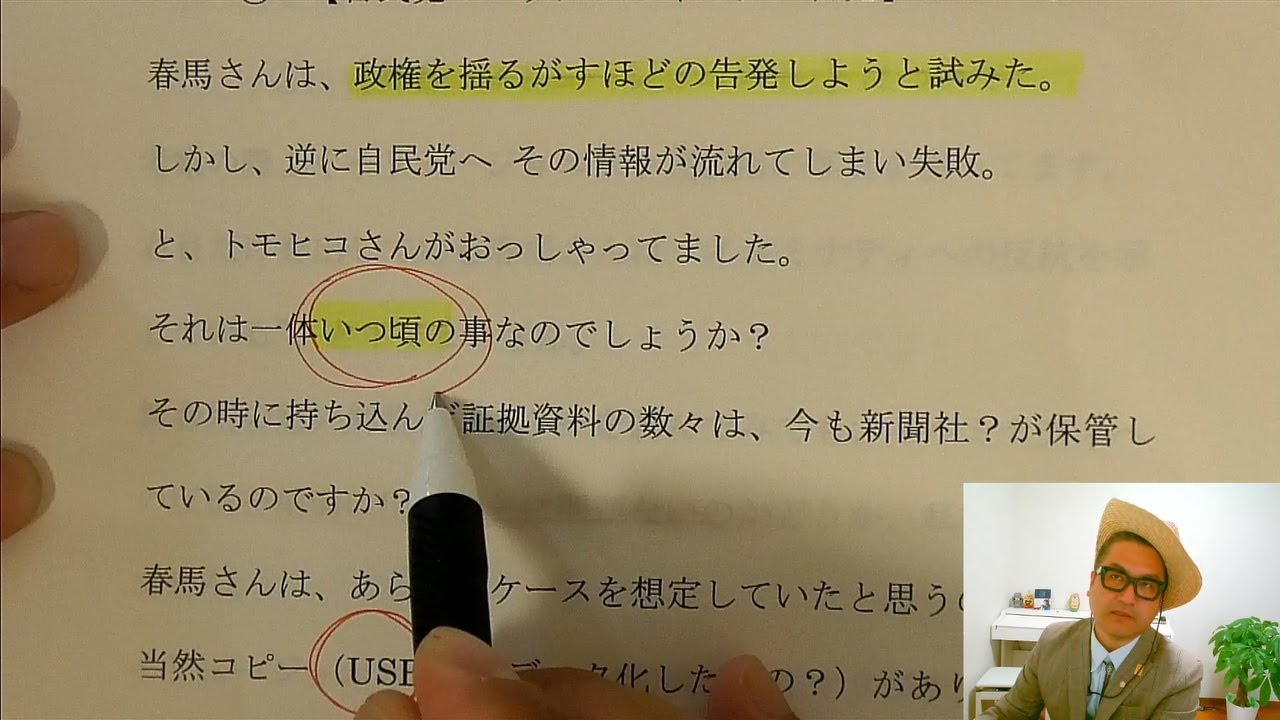 春馬さんは、政権を揺るがすほどの告発しようと試みた。
しかし、逆に自民党へ その情報が流れてしまい失敗。
と、トモヒコさんがおっしゃってました。
それは一体いつ頃の事なのでしょうか？
その時に持ち込んだ証拠資料の数々は、今も新聞社？が保管し
ているのですか？
春馬さんは、あら ケースを想定していたと思う
当然コピー（USB 化した の？）があり